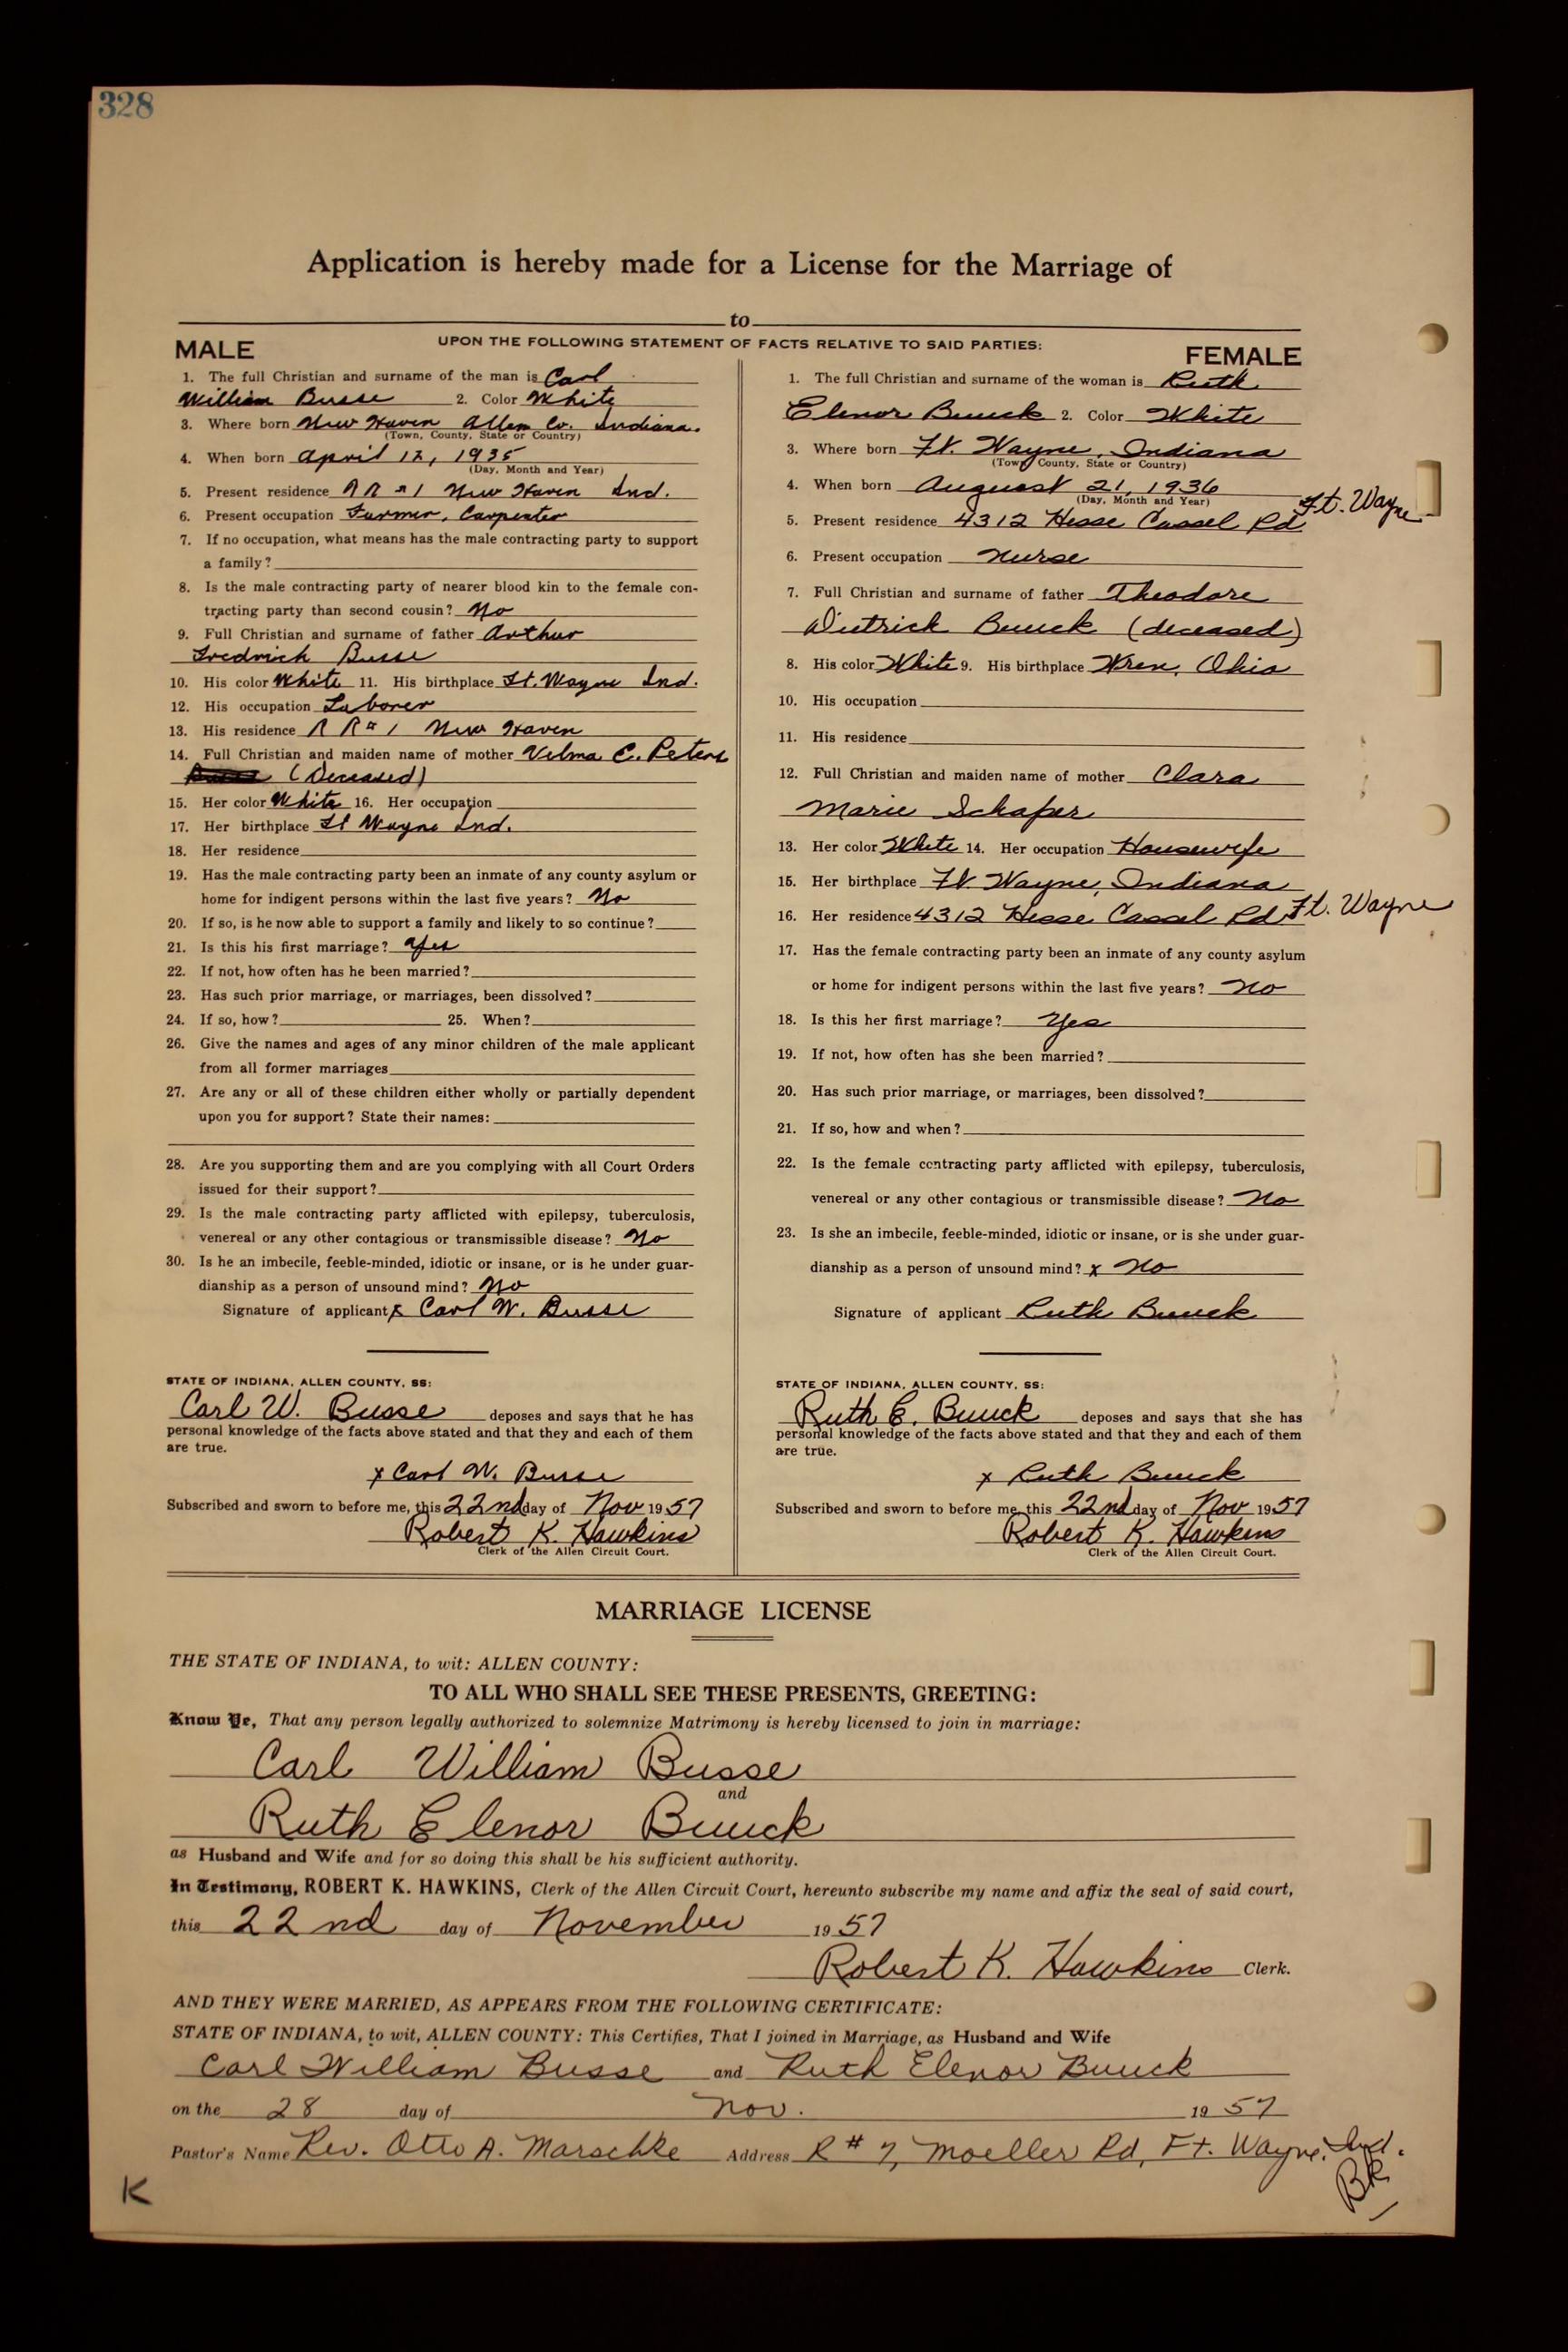 328
Application is hereby made for a License for the Marriage of
to
UPON THE FOLLOWING STATEMENT OF FACTS RELATIVE TO SAID PARTIES:
MALE
1. The full Christian and surname of the man is Carl
William Busse 2. Color White
3. Where born New Haven Allen Co. Indiana.
(Town, County, State or Country)
4. When born April 12, 1935
(Day, Month and Year)
5. Present residence RR #1 New Haven Ind.
6. Present occupation Farmer, Carpenter
7. If no occupation, what means has the male contracting party to support
a family?
8. Is the male contracting party of nearer blood kin to the female con-
tracting party than second cousin? No
9. Full Christian and surname of father Arthur
Fredrich Busse
10. His color White 11. His birthplace Ft. Wayne Ind.
12. His occupation Laborer
13. His residence R R # 1 New Haven
14. Full Christian and maiden name of mother Velma C. Peters
(Deceased)
15. Her color White 16. Her occupation
17. Her birthplace Ft Wayne Ind.
18. Her residence
19. Has the male contracting party been an inmate of any county asylum or
home for indigent persons within the last five years? No
20. If so, is he now able to support a family and likely to so continue?
21. Is this his first marriage? Yes
22. If not, how often has he been married?
23. Has such prior marriage, or marriages, been dissolved?
24. If so, how? 25. When?
26. Give the names and ages of any minor children of the male applicant
from all former marriages
27. Are any or all of these children either wholly or partially dependent
upon you for support? State their names:
28. Are you supporting them and are you complying with all Court Orders
issued for their support?
29. Is the male contracting party afflicted with epilepsy, tuberculosis,
venereal or any other contagious or transmissible disease? No
30. Is he an imbecile, feeble-minded, idiotic or insane, or is he under guar-
dianship as a person of unsound mind? No
Signature of applicant x Carl W. Busse
STATE OF INDIANA, ALLEN COUNTY, SS:
Carl W. Busse deposes and says that he has
personal knowledge of the facts above stated and that they and each of them
are true.
x Carl W. Busse
Subscribed and sworn to before me, this 22nd day of Nov 1957
Robert K. Hawkins
Clerk of the Allen Circuit Court.
FEMALE
1. The full Christian and surname of the woman is Ruth
Elenor Buuck 2. Color White
3. Where born Ft. Wayne, Indiana
(Town, County, State or Country)
4. When born August 21, 1936
(Day, Month and Year)
5. Present residence 4312 Hesse Cassel Rd Ft. Wayne
6. Present occupation Nurse
7. Full Christian and surname of father Theodore
Dietrick Buuck (deceased)
8. His color White 9. His birthplace Wren, Ohio
10. His occupation
11. His residence
12. Full Christian and maiden name of mother Clara
Marie Schaper
13. Her color White 14. Her occupation Housewife
15. Her birthplace Ft. Wayne, Indiana
16. Her residence 4312 Hesse Cassel Rd Ft. Wayne
17. Has the female contracting party been an inmate of any county asylum
or home for indigent persons within the last five years? No
18. Is this her first marriage? Yes
19. If not, how often has she been married?
20. Has such prior marriage, or marriages, been dissolved?
21. If so, how and when?
22. Is the female contracting party afflicted with epilepsy, tuberculosis,
venereal or any other contagious or transmissible disease? No
23. Is she an imbecile, feeble-minded, idiotic or insane, or is she under guar-
dianship as a person of unsound mind? x No
Signature of applicant Ruth Buuck
STATE OF INDIANA, ALLEN COUNTY, SS:
Ruth E. Buuck deposes and says that she has
personal knowledge of the facts above stated and that they and each of them
are true.
x Ruth Buuck
Subscribed and sworn to before me, this 22nd day of Nov 1957
Robert K. Hawkins
Clerk of the Allen Circuit Court.
MARRIAGE LICENSE
THE STATE OF INDIANA, to wit: ALLEN COUNTY:
TO ALL WHO SHALL SEE THESE PRESENTS, GREETING:
Know Ye, That any person legally authorized to solemnize Matrimony is hereby licensed to join in marriage:
Carl William Busse
and
Ruth Elenor Buuck
as Husband and Wife and for so doing this shall be his sufficient authority.
In Testimony, ROBERT K. HAWKINS, Clerk of the Allen Circuit Court, hereunto subscribe my name and affix the seal of said court,
this 22nd day of November 1957
Robert K. Hawkins Clerk.
AND THEY WERE MARRIED, AS APPEARS FROM THE FOLLOWING CERTIFICATE:
STATE OF INDIANA, to wit, ALLEN COUNTY: This Certifies, That I joined in Marriage, as Husband and Wife
Carl William Busse and Ruth Elenor Buuck
on the 28 day of Nov. 1957
Pastor's Name Rev. Otto A. Marschke Address R # 7, Moeller Rd, Ft. Wayne, Ind.
K
BK